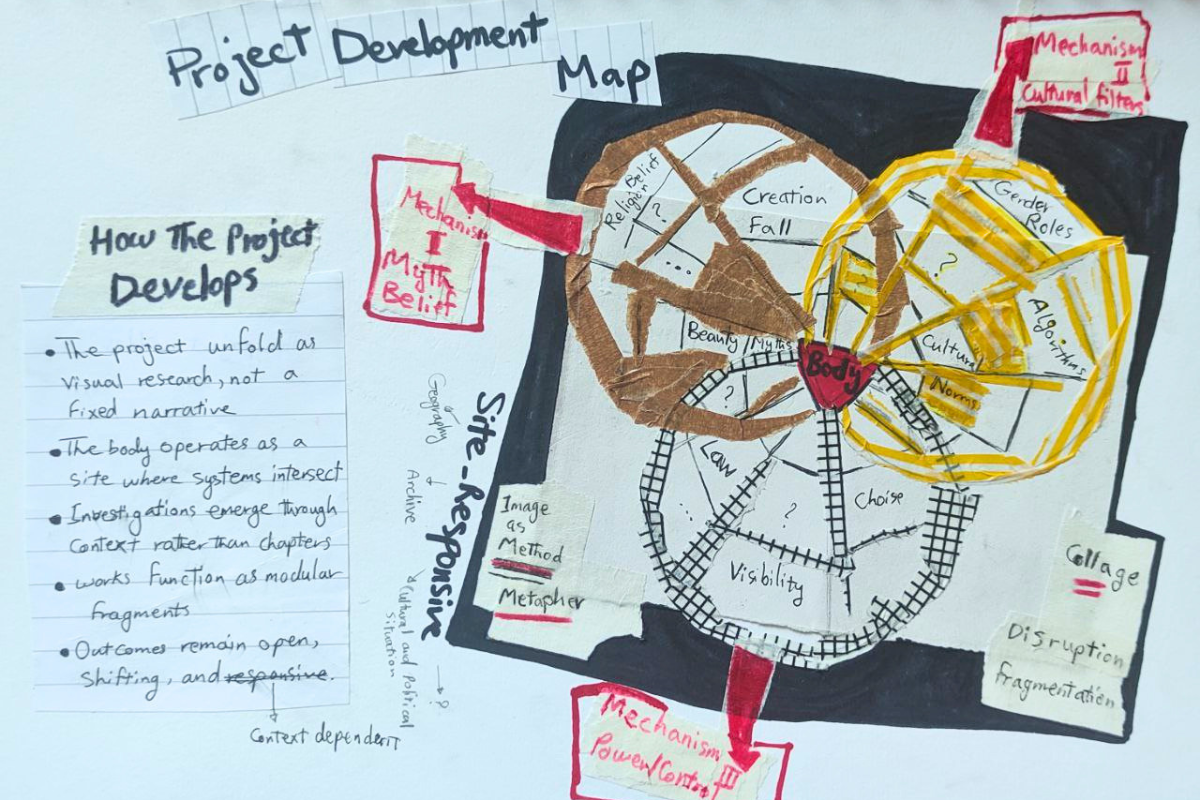 Project Development
Map
Mechanism
II
Cultural filters
Mechanism
I
Myth
Belief
How The Project
Develops
• The project unfold as
visual research, not a
fixed narrative
• The body operates as a
site where systems intersect
• Investigations emerge through
Context rather than chapters
• works function as modular
fragments
• Outcomes remain open,
shifting, and responsive.
Context dependent
Site-Responsive
Geography
Archive
Cultural and Political
situation
?
Belief
Religion
?
...
Creation
Fall
Beauty Myths
?
Gender
Roles
?
Algorithms
Cultural
Norms
Body
Law
?
Choise
Visibility
Image
as
Method
Metapher
Collage
Disruption
fragmentation
Mechanism
III
Power/Control